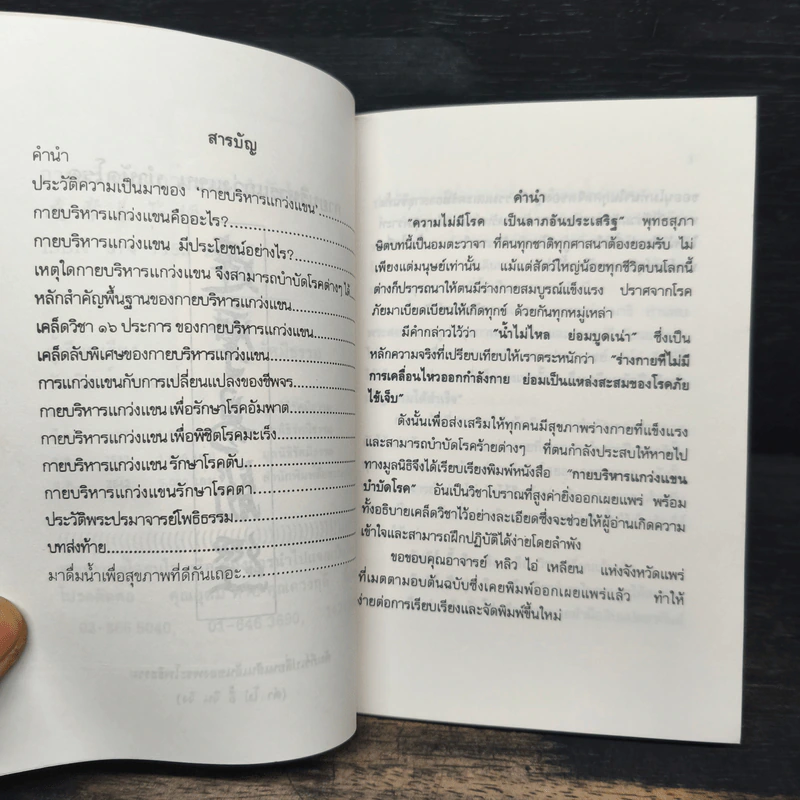 สารบัญ
คำนำ
ประวัติความเป็นมาของ ‘กายบริหารแกว่งแขน’.
กายบริหารแกว่งแขนคืออะไร?....................
กายบริหารแกว่งแขน มีประโยชน์อย่างไร?..........
เหตุใดกายบริหารแกว่งแขน จึงสามารถบำบัดโรคต่างๆ ได้
หลักสำคัญพื้นฐานของกายบริหารแกว่งแขน............
เคล็ดวิชา ๑๖ ประการ ของกายบริหารแกว่งแขน........
เคล็ดลับพิเศษของกายบริหารแกว่งแขน..............
การแกว่งแขนกับการเปลี่ยนแปลงของชีพจร...........
กายบริหารแกว่งแขน เพื่อรักษาโรคอัมพาต............
กายบริหารแกว่งแขน เพื่อพิชิตโรคมะเร็ง..............
กายบริหารแกว่งแขน รักษาโรคตับ..................
กายบริหารแกว่งแขนรักษาโรคตา....................
ประวัติพระปรมาจารย์โพธิธรรม....................
บทส่งท้าย....................................
มาดื่มน้ำเพื่อสุขภาพที่ดีกันเถอะ....................
คำนำ
“ความไม่มีโรค เป็นลาภอันประเสริฐ” พุทธสุภา
ษิตบทนี้เป็นอมตะวาจา ที่คนทุกชาติทุกศาสนาต้องยอมรับ ไม่
เพียงแต่มนุษย์เท่านั้น แม้แต่สัตว์ใหญ่น้อยทุกชีวิตบนโลกนี้
ต่างก็ปรารถนาให้ตนมีร่างกายสมบูรณ์แข็งแรง ปราศจากโรค
ภัยมาเบียดเบียนให้เกิดทุกข์ ด้วยกันทุกหมู่เหล่า
มีคำกล่าวไว้ว่า “น้ำไม่ไหล ย่อมบูดเน่า” ซึ่งเป็น
หลักความจริงที่เปรียบเทียบให้เราตระหนักว่า “ร่างกายที่ไม่มี
การเคลื่อนไหวออกกำลังกาย ย่อมเป็นแหล่งสะสมของโรคภัย
ไข้เจ็บ”
ดังนั้นเพื่อส่งเสริมให้ทุกคนมีสุขภาพร่างกายที่แข็งแรง
และสามารถบำบัดโรคร้ายต่างๆ ที่ตนกำลังประสบให้หายไป
ทางมูลนิธิจึงได้เรียบเรียงพิมพ์หนังสือ “กายบริหารแกว่งแขน
บำบัดโรค” อันเป็นวิชาโบราณที่สูงค่ายิ่งออกเผยแพร่ พร้อม
ทั้งอธิบายเคล็ดวิชาไว้อย่างละเอียดซึ่งจะช่วยให้ผู้อ่านเกิดความ
เข้าใจและสามารถฝึกปฏิบัติได้ง่ายโดยลำพัง
ขอขอบคุณอาจารย์ หลิว ไอ่ เหลียน แห่งจังหวัดแพร่
ที่เมตตามอบต้นฉบับซึ่งเคยพิมพ์ออกเผยแพร่แล้ว ทำให้
ง่ายต่อการเรียบเรียงและจัดพิมพ์ขึ้นใหม่